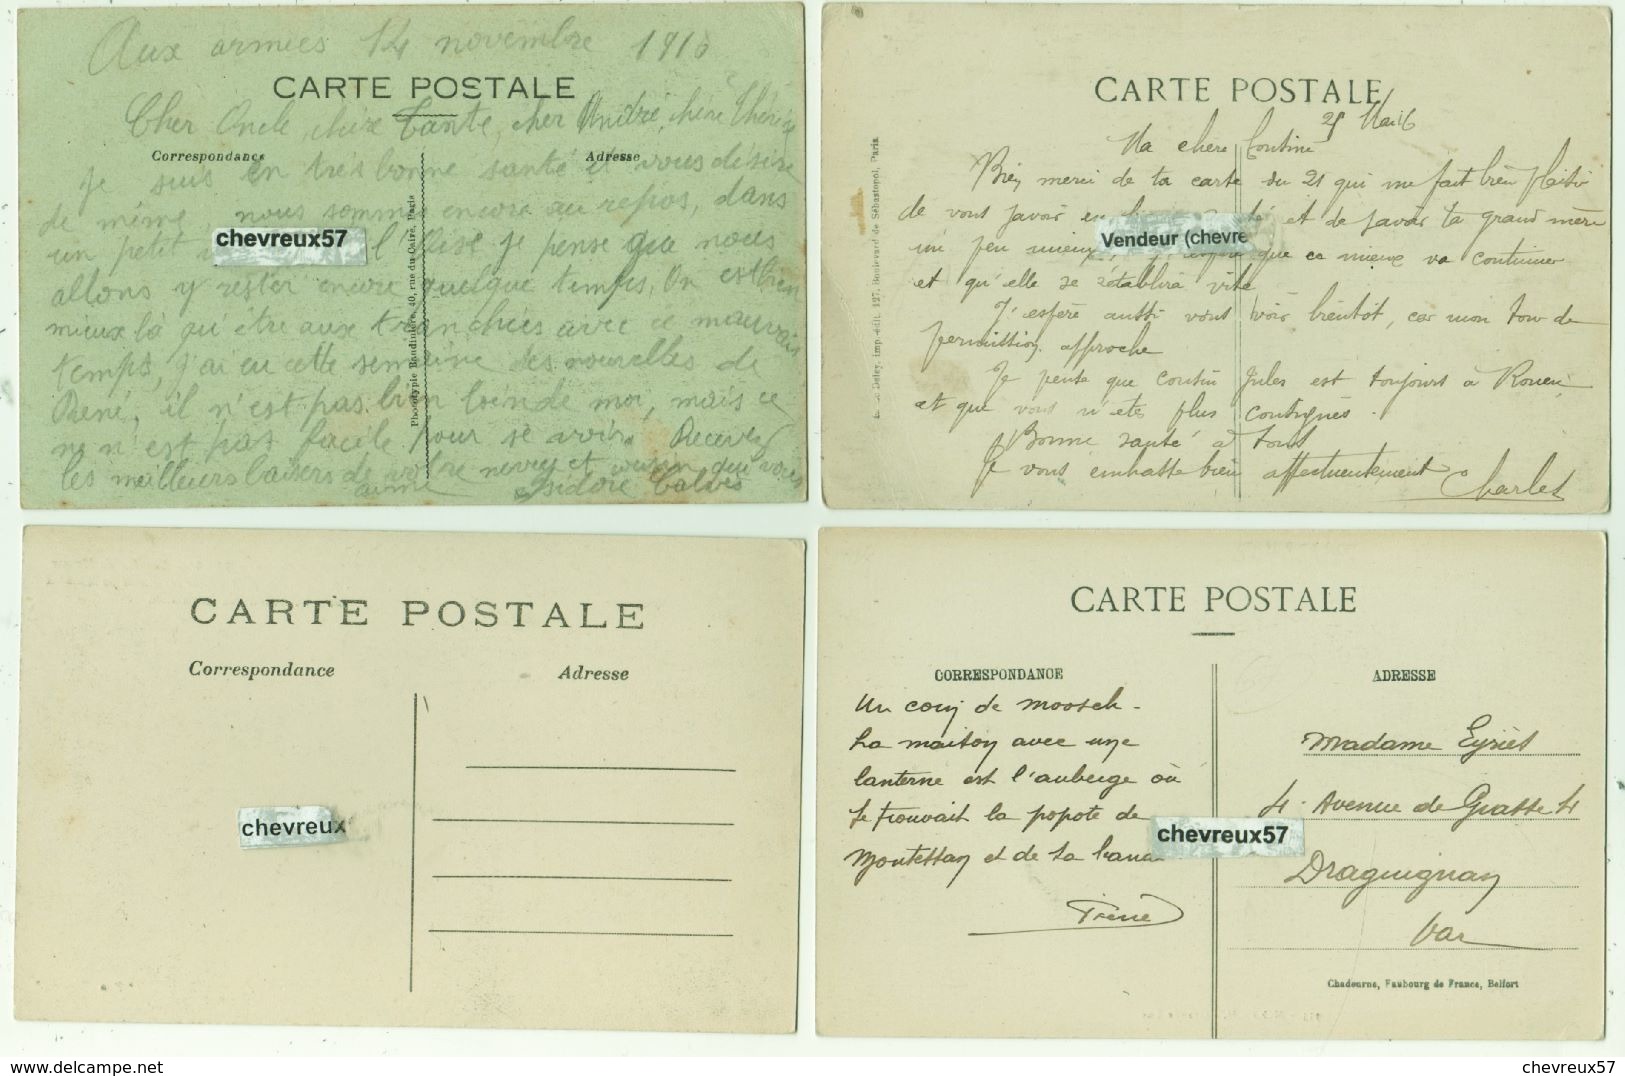 Aux armées 14 novembre 1916
CARTE POSTALE
Cher Oncle, chère Tante, cher André, chère Thérèse
Correspondance
Adresse
Je suis en très bonne santé et vous désire
de même nous sommes encore au repos, dans
un petit l'Oise je pense que nous
allons y rester encore quelque temps, On est bien
mieux là qu'être aux tranchées avec ce mauvais
temps, j'ai eu cette semaine des nouvelles de
René, il n'est pas bien loin de moi, mais ce
ne n'est pas facile pour se voir. Recevez
les meilleurs baisers de votre neveu et cousin qui vous
aime Isidore Calvès
Phototypie Baudinière, 40, rue du Caire, Paris
chevreux57
CARTE POSTALE
25 Mai 16
Ma chère Cousine
Bien merci de ta carte du 21 qui me fait bien plaisir
de vous savoir en et de savoir ta grand mère
un peu mieux, que ce mieux va continuer
et qu'elle se rétablira vite
J'espère aussi vous voir bientôt, car mon tour de
permission approche
Je pense que cousin Jules est toujours à Rouen
et que vous n'etes plus consignés.
Bonne santé à tous
Je vous embrasse bien affectueusement
Charles
imp.-édit. 127, Boulevard de Sébastopol, Paris
Vendeur (chevre
CARTE POSTALE
Correspondance
Adresse
chevreux
CARTE POSTALE
CORRESPONDANCE
ADRESSE
Un coin de Moosch -
La maison avec une
lanterne est l'auberge où
se trouvait la popote de
Montessan et de sa
Madame Eyriès
4 Avenue de Grasse 4
Draguignan
Var
chevreux57
Chadourne, Faubourg de France, Belfort
chevreux57